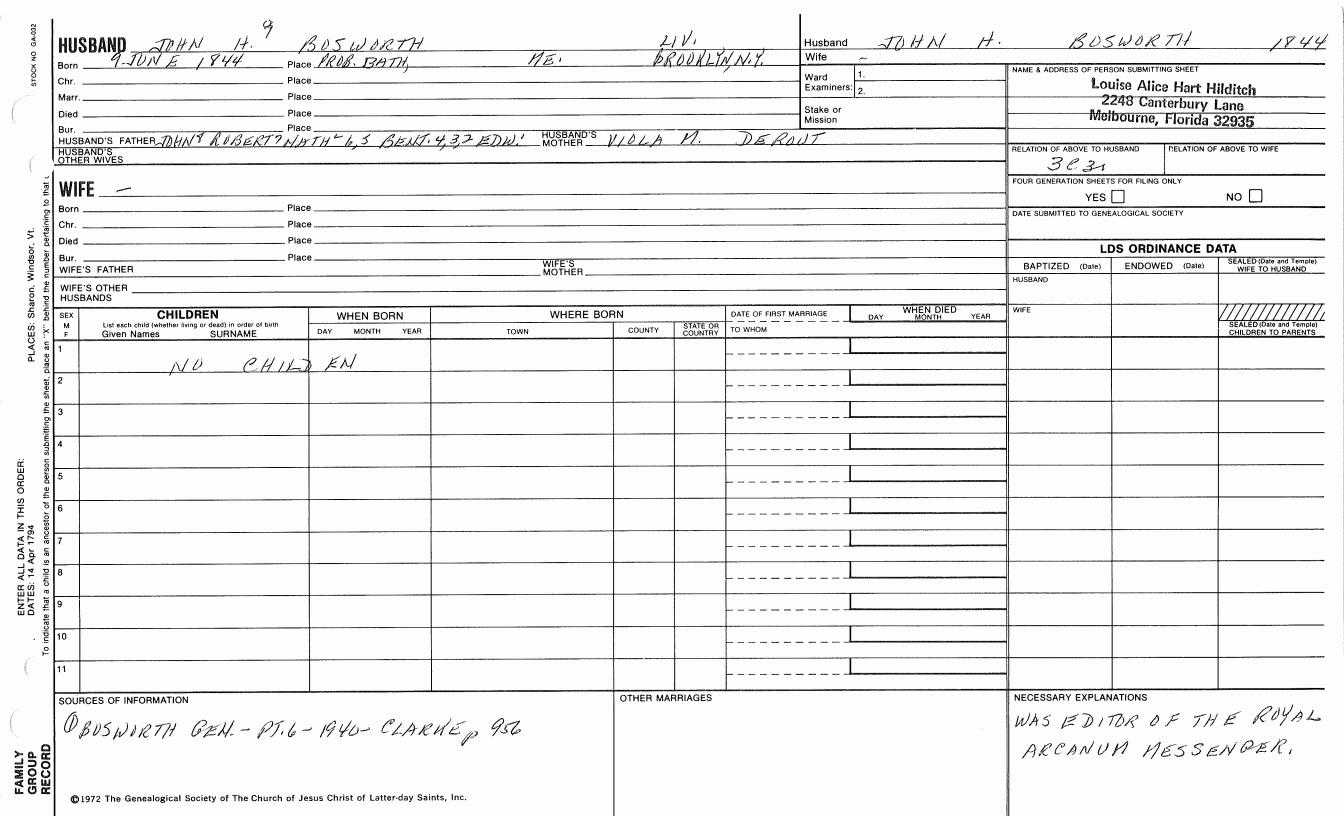 STOCK NO GA-032
PLACES: Sharon, Windsor, Vt.
ENTER ALL DATA IN THIS ORDER:
DATES: 14 Apr 1794
To indicate that a child is an ancestor of the person submitting the sheet, place an "X" behind the number pertaining to that
FAMILY
GROUP
RECORD
9
HUSBAND JOHN H. BOSWORTH LIV.
Born 9 JUNE 1844 Place PROB. BATH, ME. BROOKLYN, N.Y.
Chr. Place
Marr. Place
Died Place
Bur. Place
HUSBAND'S FATHER JOHN 8 ROBERT 7 NATH L 6,5 BENJ. 4,3,2 EDW. 1 HUSBAND'S MOTHER VIOLA M.
HUSBAND'S OTHER WIVES
Husband JOHN H. BOSWORTH 1844
Wife –
Ward Examiners: 1.
2.
Stake or Mission
NAME & ADDRESS OF PERSON SUBMITTING SHEET
Louise Alice Hart Hilditch
2248 Canterbury Lane
Melbourne, Florida 32935
RELATION OF ABOVE TO HUSBAND RELATION OF ABOVE TO WIFE
FOUR GENERATION SHEETS FOR FILING ONLY
YES NO
DATE SUBMITTED TO GENEALOGICAL SOCIETY
WIFE –
Born Place
Chr. Place
Died Place
Bur. Place
WIFE'S FATHER WIFE'S MOTHER
WIFE'S OTHER HUSBANDS
LDS ORDINANCE DATA
BAPTIZED (Date) ENDOWED (Date) SEALED (Date and Temple) WIFE TO HUSBAND
HUSBAND
WIFE
SEALED (Date and Temple) CHILDREN TO PARENTS
SEX M F
CHILDREN
List each child (whether living or dead) in order of birth
Given Names SURNAME
WHEN BORN
DAY MONTH YEAR
WHERE BORN
TOWN COUNTY STATE OR COUNTRY
DATE OF FIRST MARRIAGE
TO WHOM
WHEN DIED
DAY MONTH YEAR
1
NO CHILD EN
2
3
4
5
6
7
8
9
10
11
SOURCES OF INFORMATION
① BOSWORTH GEN. – PT. 6 – 1940 – CLARKE p 956
OTHER MARRIAGES
NECESSARY EXPLANATIONS
WAS EDITOR OF THE ROYAL
ARCANUM MESSENGER.
©1972 The Genealogical Society of The Church of Jesus Christ of Latter-day Saints, Inc.